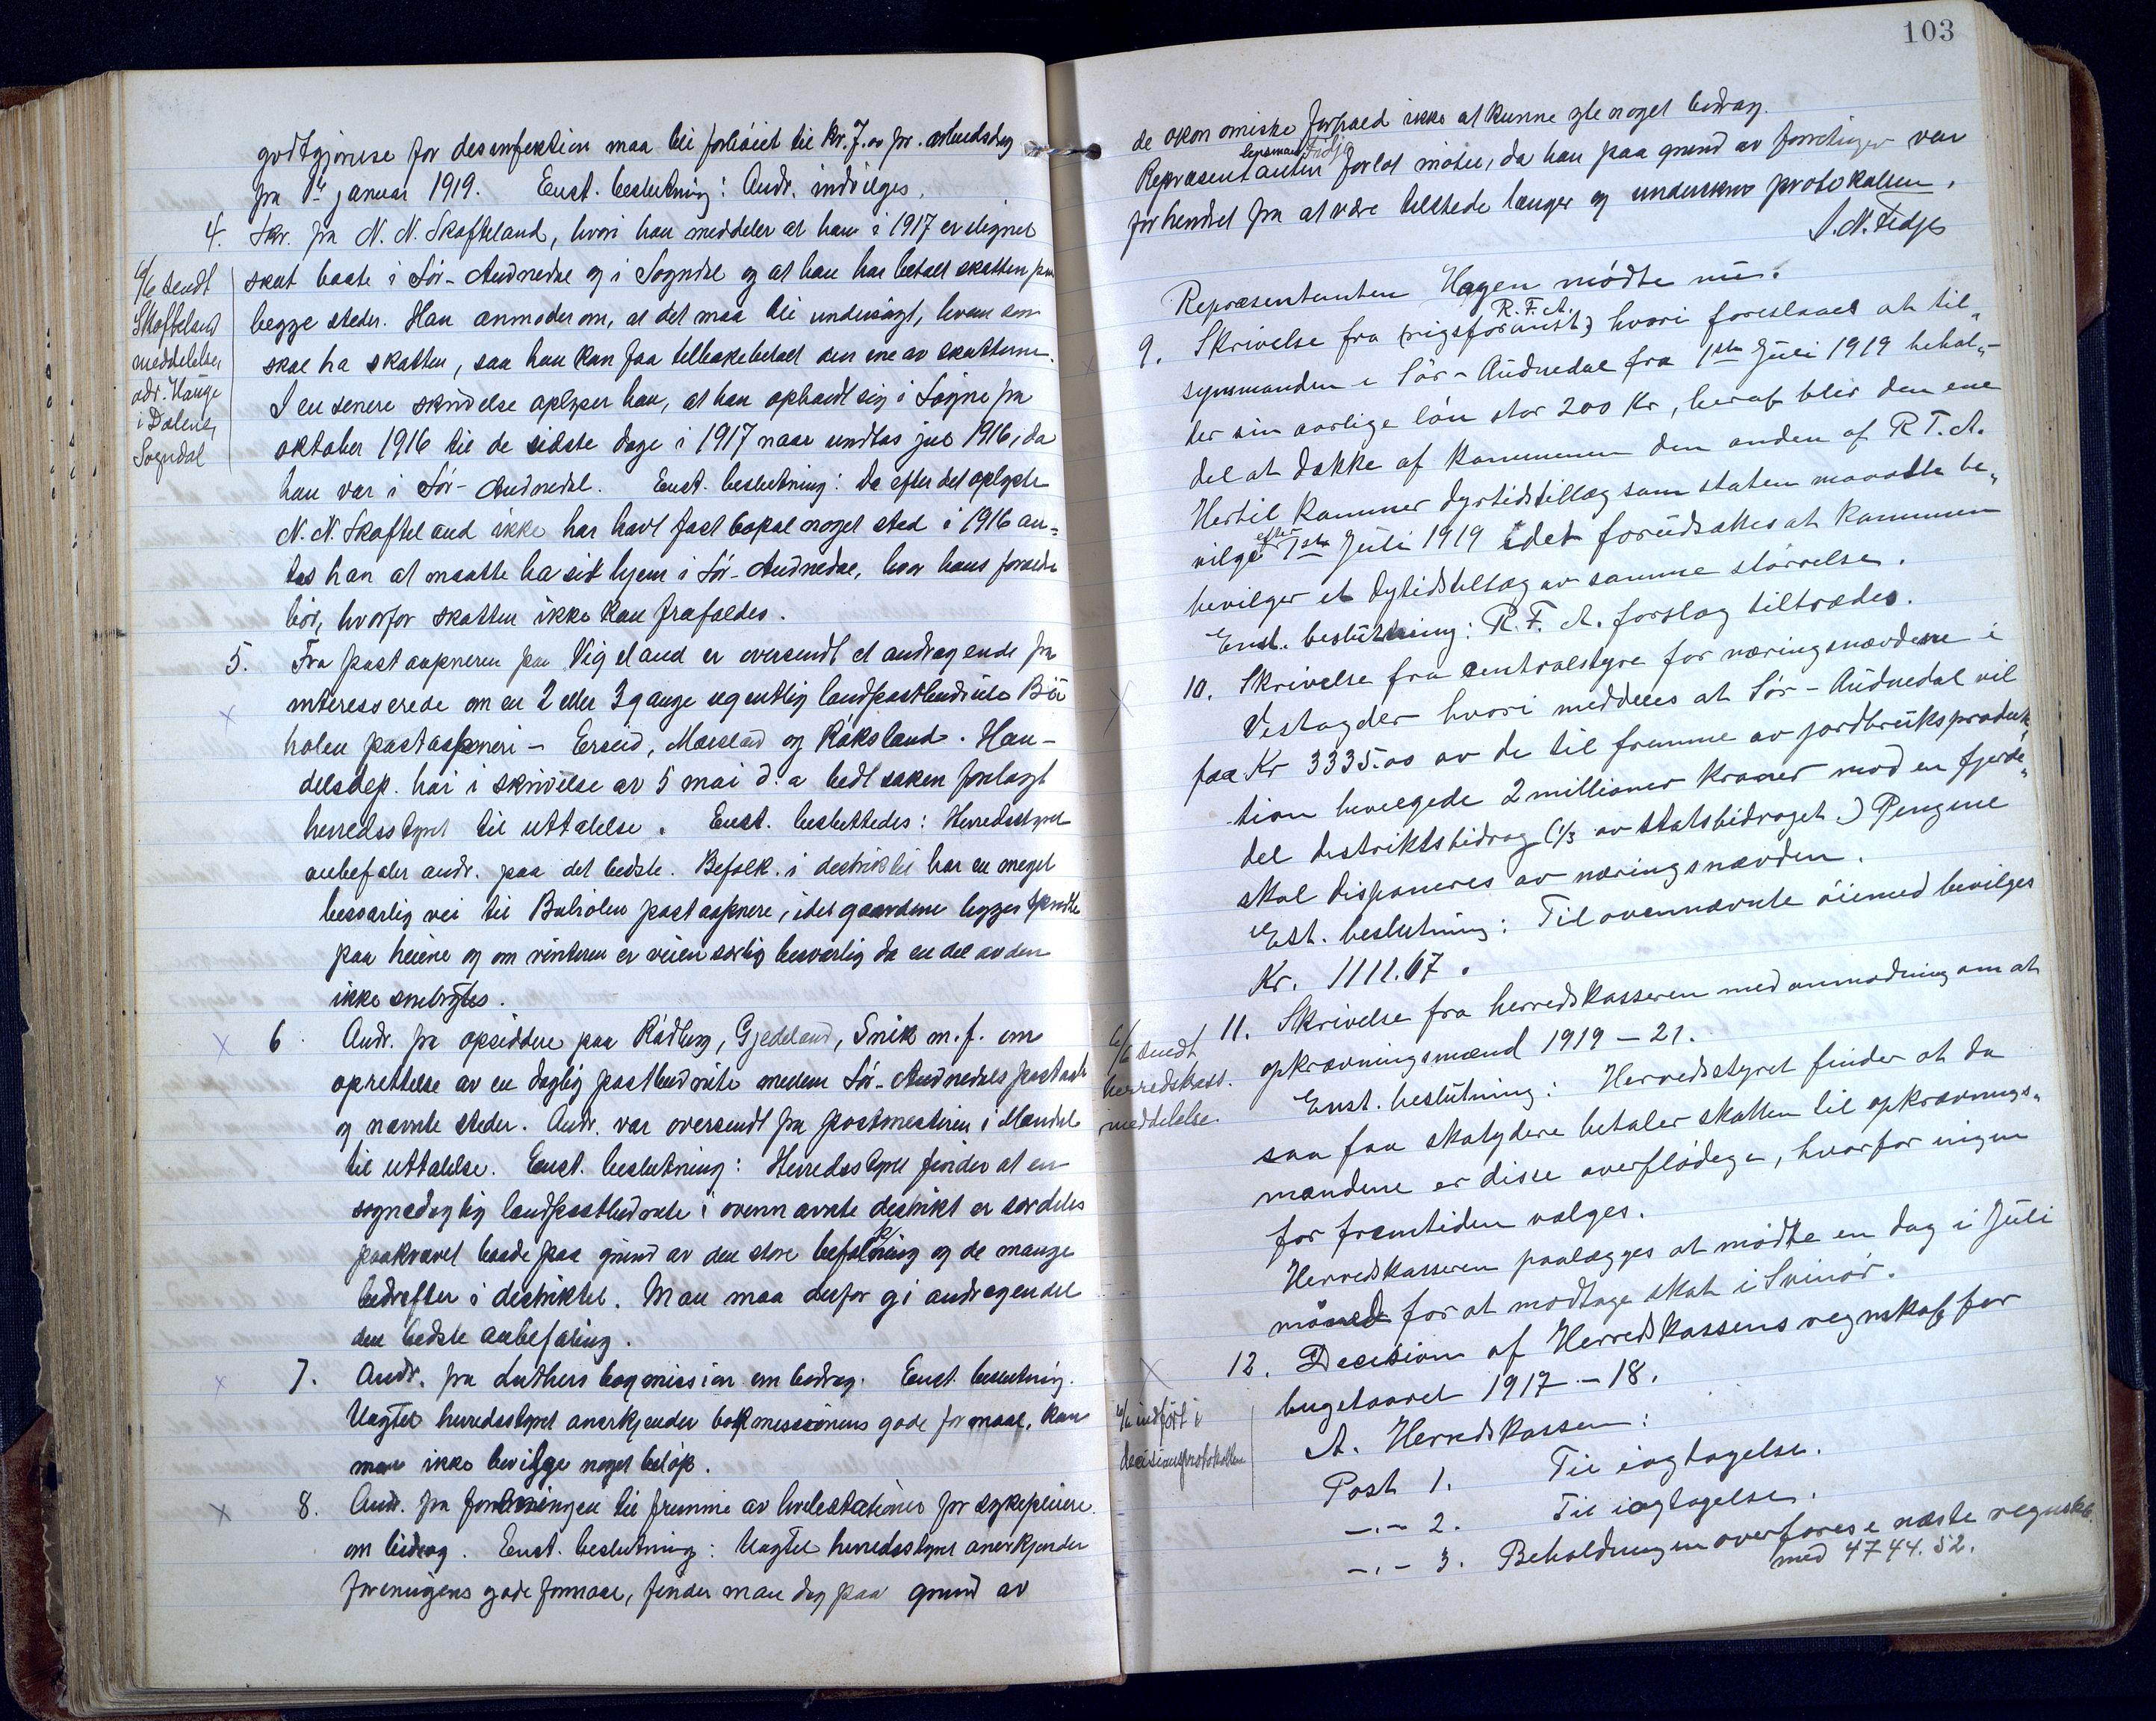 godtgjørelse for desinfektion maa bli forhøiet til kr. 7.00 pr. arbeidsdag
fra 1ste januar 1919. Enst. beslutning: Andr. indvilges.
4. Skr. fra N. N. Skofteland, hvori han meddeler at han i 1917 er lignet
skat baate i Sör-Audnedal og i Sogndal og at han har betalt skatten paa
begge steder. Han anmoder om, at det maa bli undersögt, hvem som
skal ha skatten, saa han kan faa tilbakebetalt den ene av skatterne.
I en senere skrivelse oplyser han, at han opholdt sig i Sogne fra
oktober 1916 til de sidste dage i 1917 naar undtas jul 1916, da
han var i Sör-Audnedal. Enst. beslutning: Da efter det oplyste
N. N. Skofteland ikke har havt fast bopæl noget sted i 1916 an-
tas han at maatte ha sit hjem i Sör-Audnedal, hvor hans forældre
bör, hvorfor skatten ikke kan frafaldes.
6/6 sendt
Skofteland
meddelelse,
adr. Hauge
i Dalene,
Sogndal
5. Fra postaapneren paa Vigeland er oversendt et andragende fra
interesserede om en 2 eller 3 gange ugentlig landpostbudrute Bü
holen postaapneri – Erseid, Mæsland og Röksland. Han-
delsdep. har i skrivelse av 5 mai d. a bedt saken forelagt
herredsstyret til uttalelse. Enst. besluttedes: Herredsstyret
anbefaler andr. paa det bedste. Befolk. i distriktet har en meget
besværlig vei til Buholen postaapneri, idet gaardene ligger spredte
paa heiene og om vinteren er veien særlig besværlig da en del av den
ikke snebrytes.
6. Andr. fra opsiddere paa Rödberg, Gjeddeland, Snik m. f. om
oprettelse av en daglig postbudrute mellem Sör-Audnedals postaap
og nævnte steder. Andr. var oversendt fra postmesteren i Mandal
til uttalelse. Enst. beslutning: Herredsstyret finder at en
sognedaglig landpostbudrute i ovennævnte distrikt er særdeles
paakrævet baade paa grund av den store befolkning og de mange
bedrifter i distriktet. Man maa derfor gi andragendet
den bedste anbefaling.
7. Andr. fra Luthers bogmission om bidrag. Enst. beslutning.
Uagtet herredsstyret anerkjender bokmissionens gode formaal, kan
man ikke bevilge noget belöp.
8. Andr. fra foreningen til fremme av hvilestationer for sykepleiere
om bidrag. Enst. beslutning: Uagtet herredsstyret anerkjender
foreningens gode formaal, finder man dog paa grund av
103
de økonomiske forhold ikke at kunne yte noget bidrag.
Repræsentanten lensmand Fidje forlot mötet, da han paa grund av forretninger var
forhindret fra at være tilstede længer og underskrev protokollen.
S. N. Fidje
Repræsentanten Hagen mödte nu.
9. Skrivelse fra (rigsforsikr.) R. F. A. hvori foreslaaes at til„
synsmanden i Sör-Audnedal fra 1ste Juli 1919 behol„
der sin aarlige lön stor 200 Kr, heraf blir den ene
del at dække af kommunen den anden af R T. A.
Hertil kommer dyrtidstillæg som staten maatte be„
vilge efter 1ste Juli 1919 idet forudsættes at kommunen
bevilger et dyrtidstillæg av samme störrelse.
Enst. beslutning: R. F. A. forslag tiltrædes.
10. Skrivelse fra centralstyre for næringsnævndene i
Vestagder hvori meddeles at Sör-Audnedal vil
faa Kr 3335.00 av de til fremme av jordbruksproduk
tion bevilgede 2 millioner kroner mod en fjerde„
del distriktsbidrag (1/3 av statsbidraget.) Pengene
skal disponeres av næringsnævnden.
Est. beslutning: Til ovennævnte öiemed bevilges
Kr. 1111.67.
11. Skrivelse fra herredskasseren med anmodning om at
opkrævningsmænd 1919 – 21.
6/6 sendt
herredskass.
meddelelse.
Enst. beslutning: Herredsstyret finder at da
saa faa skatydere betaler skatten til opkrævnings„
mændene er disse overflödige, hvorfor ingen
for fremtiden vælges.
Herredskasseren paalægges at mödte en dag i Juli
måned for at modtage skat i Svinör.
12. Decision af Herredskassens regnskab for
bugetaaret 1917 – 18.
6/6 indfört i
decisionsprotokollen
A. Herredskassen:
Post 1. Til iagtagelse.
–.– 2. Til iagtagelse.
–.– 3. Beholdningen overføres i næste regnskab.
med 4744.52.